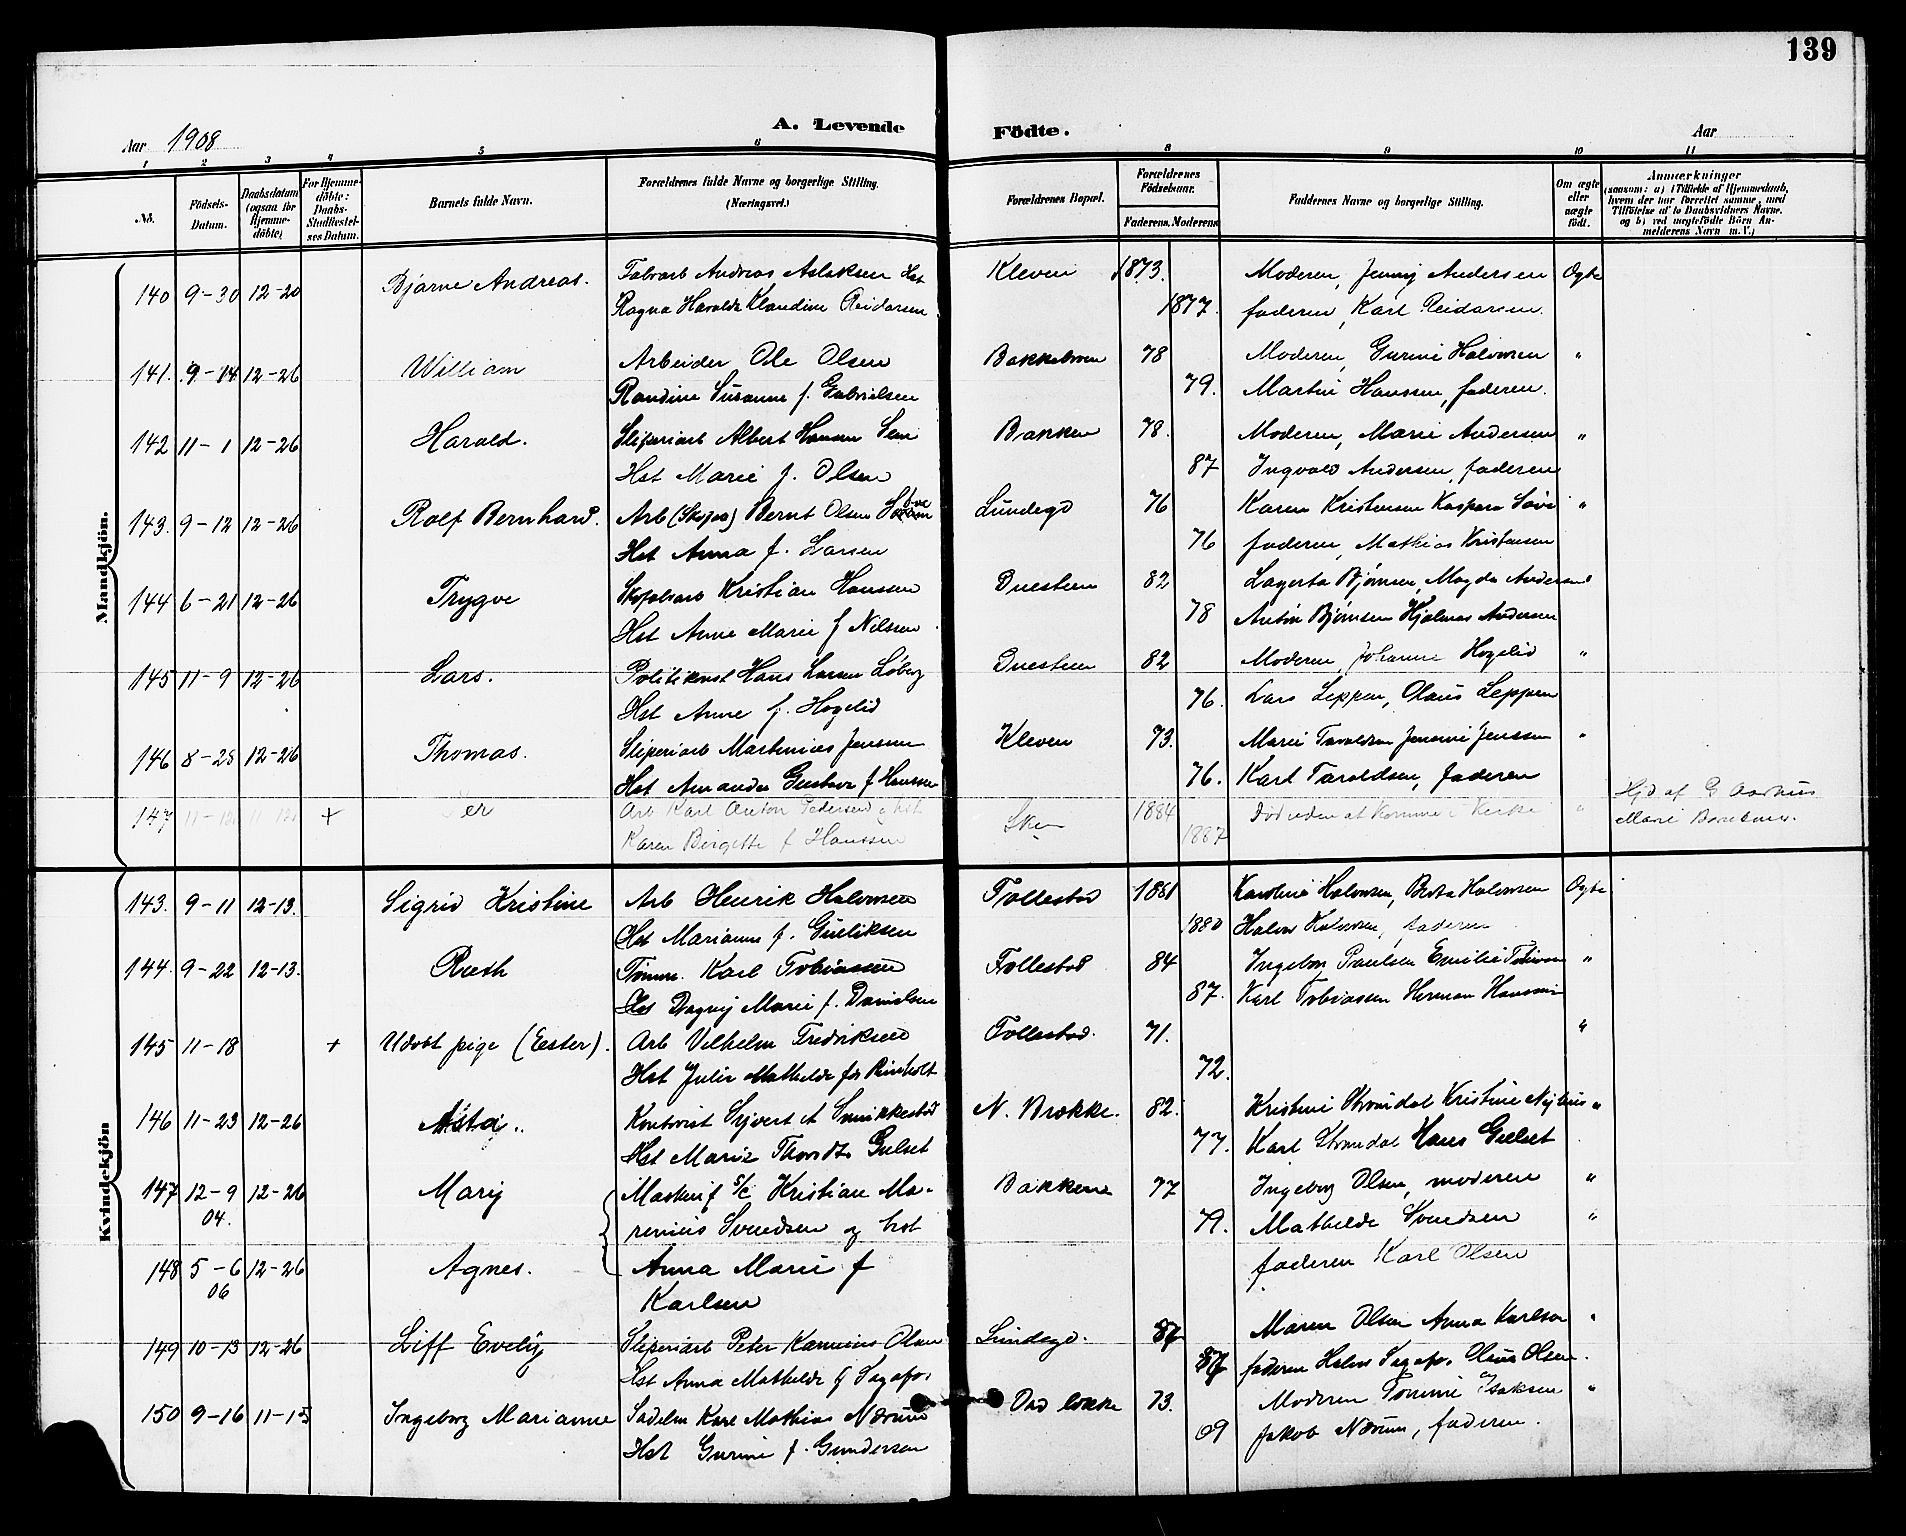 139
Aar 1908 A. Levende Födte. Aar
1 2 3 4 5 6 8 9 10 11
No. Födsels-Datum. Daabsdatum (ogsaa for Hjemme-döbte) For Hjemme-döbte: Daabs-Stadfæstel-ses Datum. Barnets fulde Navn. Forældrenes fulde Navne og borgerlige Stilling. (Næringsvei.) Forældrenes Bopæl. Forældrenes Födselsaar. Faderens. Moderens Faddernes Navne og borgerlige Stilling. Om ægte eller uægte födt. Anmærkninger (saasom: a) i Tilfælde af Hjemmedaab, hvem der har forrettet samme, med Tilföielse af to Daabsvidners Navne, og b) ved uægtefödte Börn An-melderens Navn m. V.)
Mandkjön.
140 9-30 12-20 Bjarne Andreas. Fabrarb Andreas Aslaksen Hst Kleven 1873. Moderen, Jenny Andersen Ægte
Ragna Haralda Klaudine Reidarsen 1877. faderen, Karl Reidarsen.
141. 9-14 12-26 William Arbeider Ole Olsen 78 Moderen, Gurine Halvorsen "
Randine Susanne f. Gabrielsen 79. Martin Hanssen, faderen.
142 11-1 12-26 Harald. Sliperiarb Albert Hansen Bakken 78. Moderen, Marie Andersen "
Hst Marie f. Olsen 87 Ingvald Andersen, faderen
143. 9-12 12-26 Rolf Bernhard. Arb (Skafor) Bernt Olsen Lundegd 76 Karen Kristensen Kaspara "
Hst Anna f. Larsen 76 faderen, Mathias Kristensen
144 6-21 12-26 Trygve Kristian Hanssen 82 Lagerta Bjørnsen, Magda Andersen
Hst Anne Marie f Nilsen 78 Anton Bjørnsen Hjalmar Andersen
145 11-9 12-26 Lars. Politikonst Hans Larsen Løberg 82 Moderen, Johanne Hogelid "
Hst Anne f. Hogelid 76. Lars Leppen, Olaus Leppen
146 8-28 12-26 Thomas. Sliperiarb Martinius Jenssen Kleven 73. Marie Taraldsen Jensine Jenssen "
Hst Amanda Gustava f Hanssen 76. Karl Taraldsen, faderen
147 + Arb Karl Anton Pedersen Hst 1884 Død uden at komme i Kirke " Hjd af G Aarhus
Karen Birgitte f Hanssen 1887 Marie
Kvindekjön
143. 9-11 12-13. Sigrid Kristine Arb Henrik Halvorsen Follestad 1881 Karoline Halvorsen, Berta Halvorsen Ægte
Hst Marianne f. Gulliksen 1880 Halvor Halvorsen, faderen
144. 9-22 12-13. Ruth Tømm. Karl Tobiassen Follestad 84 Ingeborg Paulsen Emilie "
Hst Dagny Marie f. Danielsen 87. Karl Tobiassen Herman Hanssen
145 11-18 + Udøbt pige (Ester). Arb Vilhelm Fredriksen Follestad. 71. "
Hst Julie Mathilde f. Reinholt 72.
146 11-23 12-26 Asta. Kontorist Syvert A Smukkestad N. Brække. 82. Kristine Strandal Kristine Nyhus "
Hst Marie Thordt. Gulset 77. Karl Strandal Hans Gulset
147 12-9 12-26 Mary Maskinf s/c Kristian Ma- Bakken 77 Ingeborg Olsen, moderen "
04. renius Svendsen og hst 79. Mathilde Svendsen "
148 5-6 12-26 Agnes. Anna Marie f faderen Karl Olsen
06 Karlsen
149 10-13 12-26 Liff Evely Sliperiarb Peter Karenius Olsen Lundegd. 87 Maren Olsen Anna Karlsen "
Hst Anna Mathilde f Sagafos 87 faderen Halvor Sagafos. Olaus Olsen.
150 9-16 11-15 Ingeborg Marianne Sadelm Karl Mathias Nærum 73. Moderen Tomine Isaksen "
Hst Gurine f. Gundersen 09 Jakob Nærum, faderen.